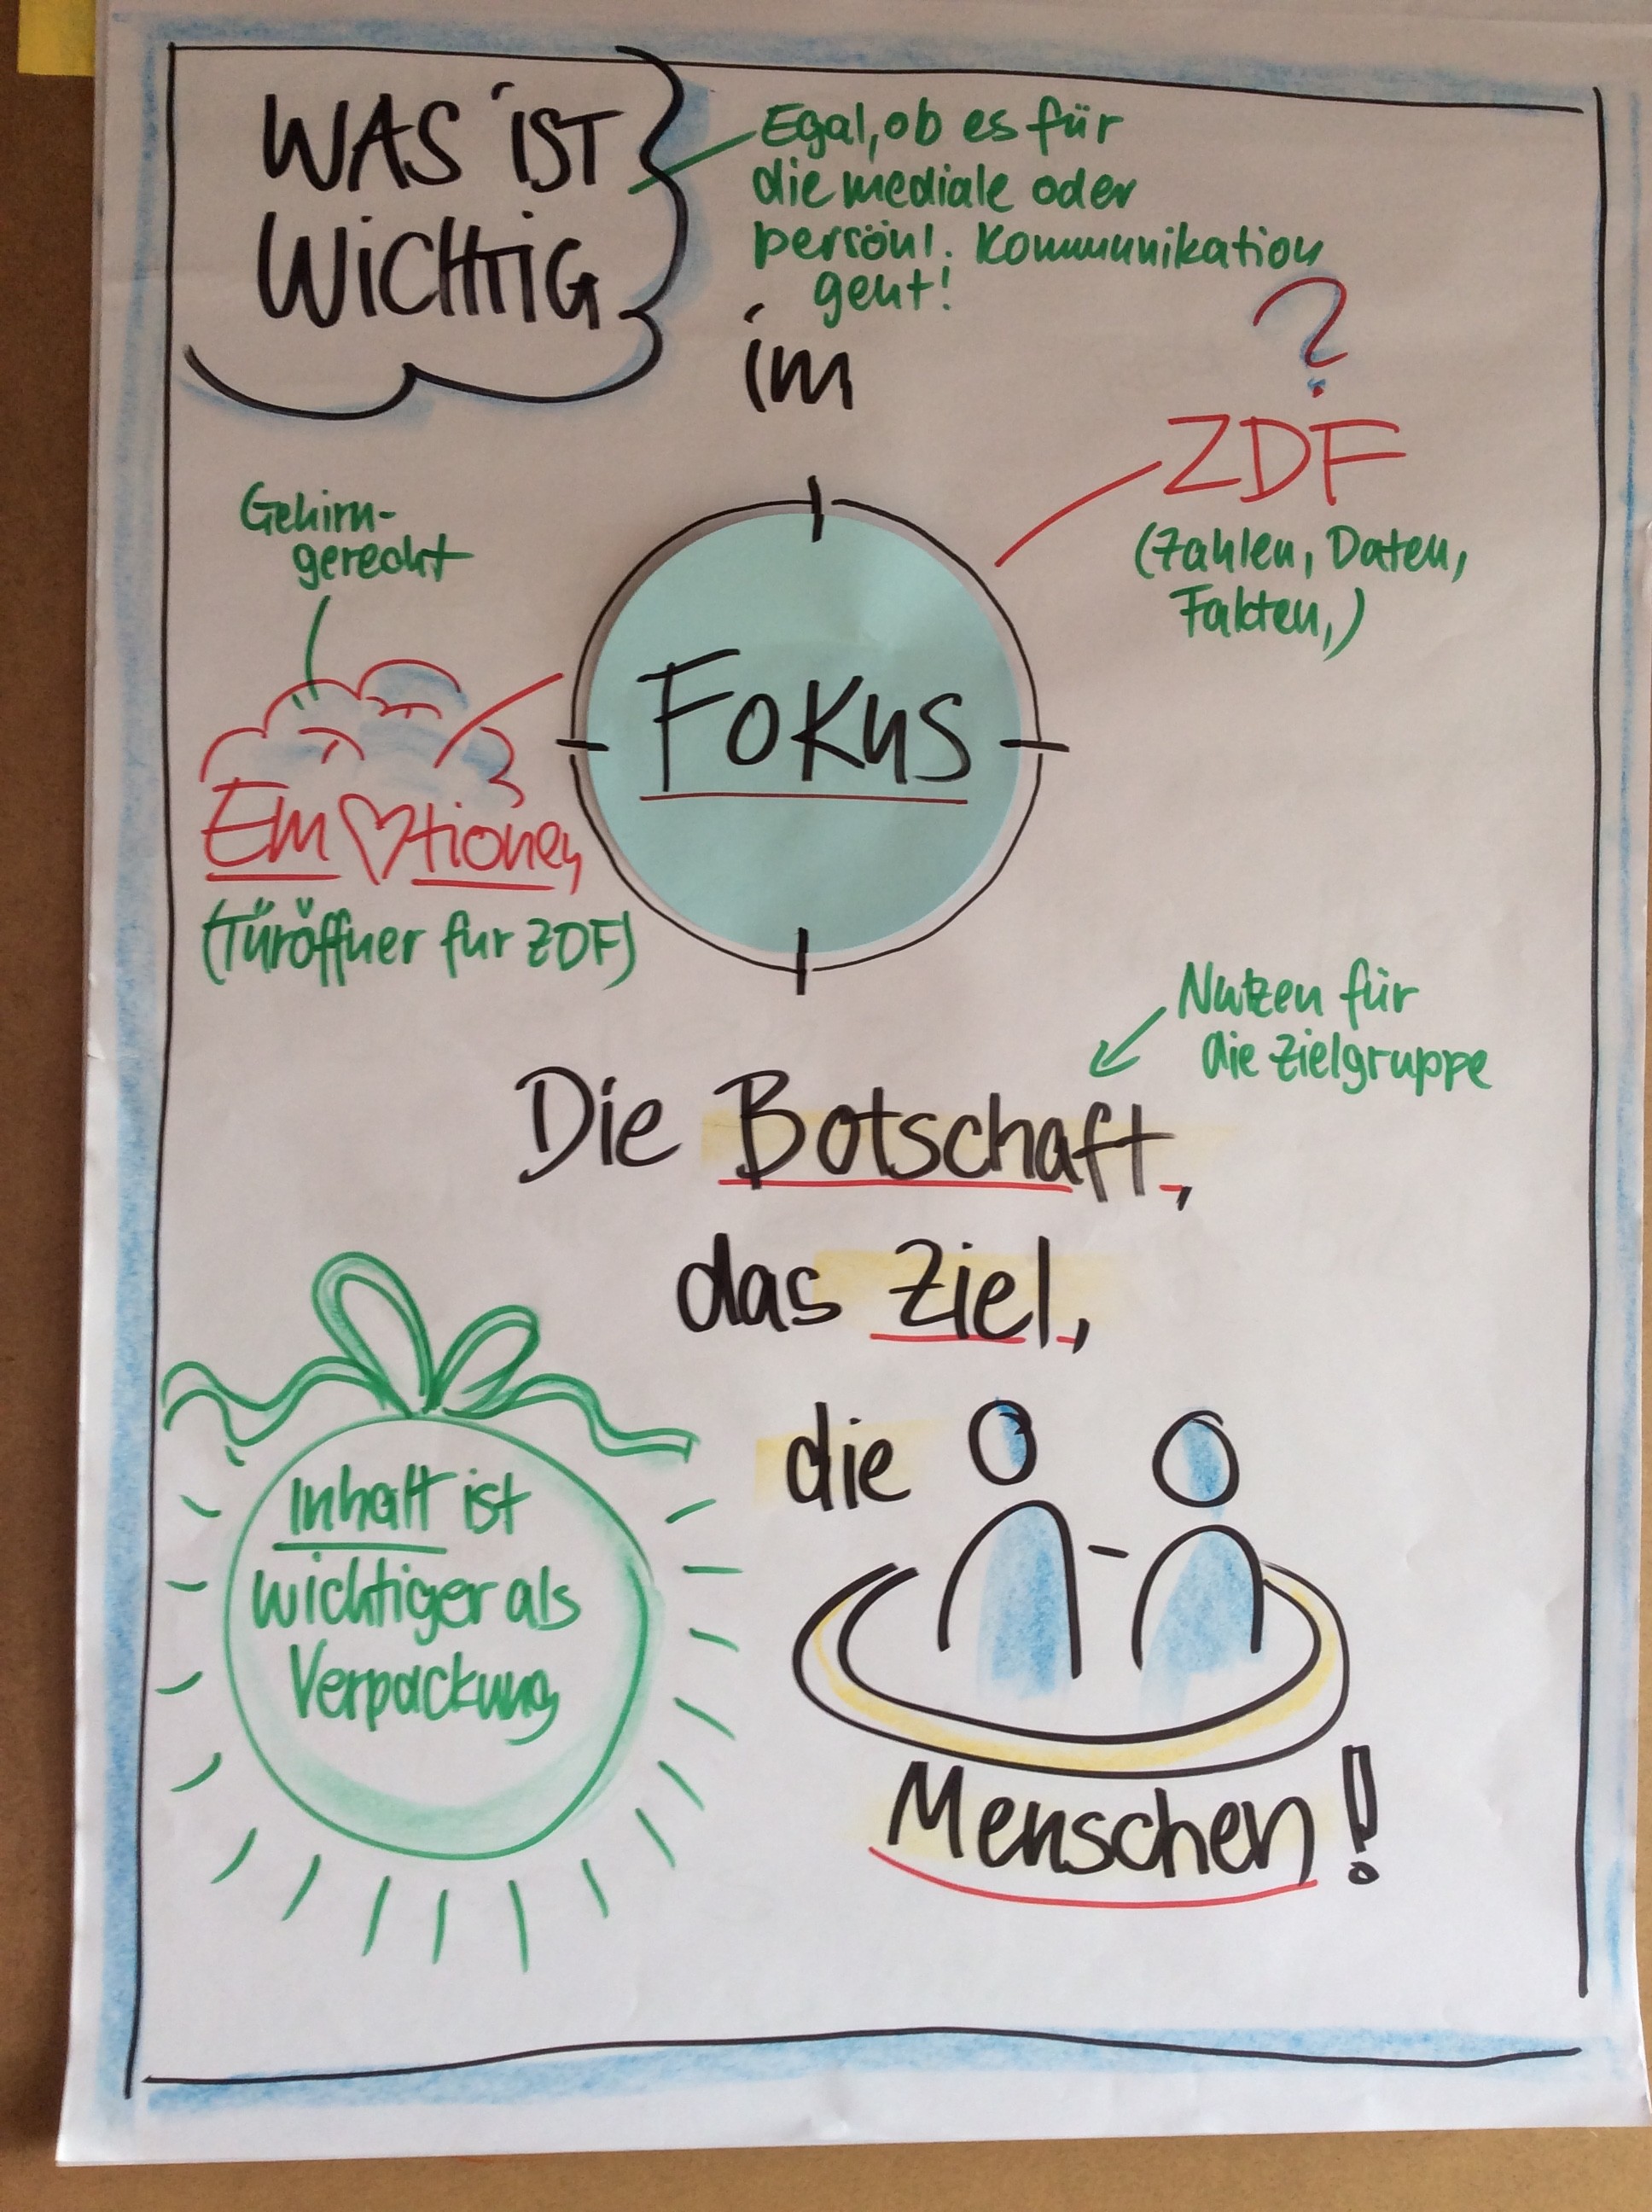 WAS iST
WiCHTiG
Egal, ob es für
die mediale oder
persönl. Kommunikation
geht!
im
?
ZDF
(Zahlen, Daten,
Fakten,)
Gehirn-
gerecht
Fokus
Em♡tionen
(Türöffner für ZDF)
Nutzen für
die Zielgruppe
Die Botschaft,
das Ziel,
die
Inhalt ist
wichtiger als
Verpackung
Menschen!